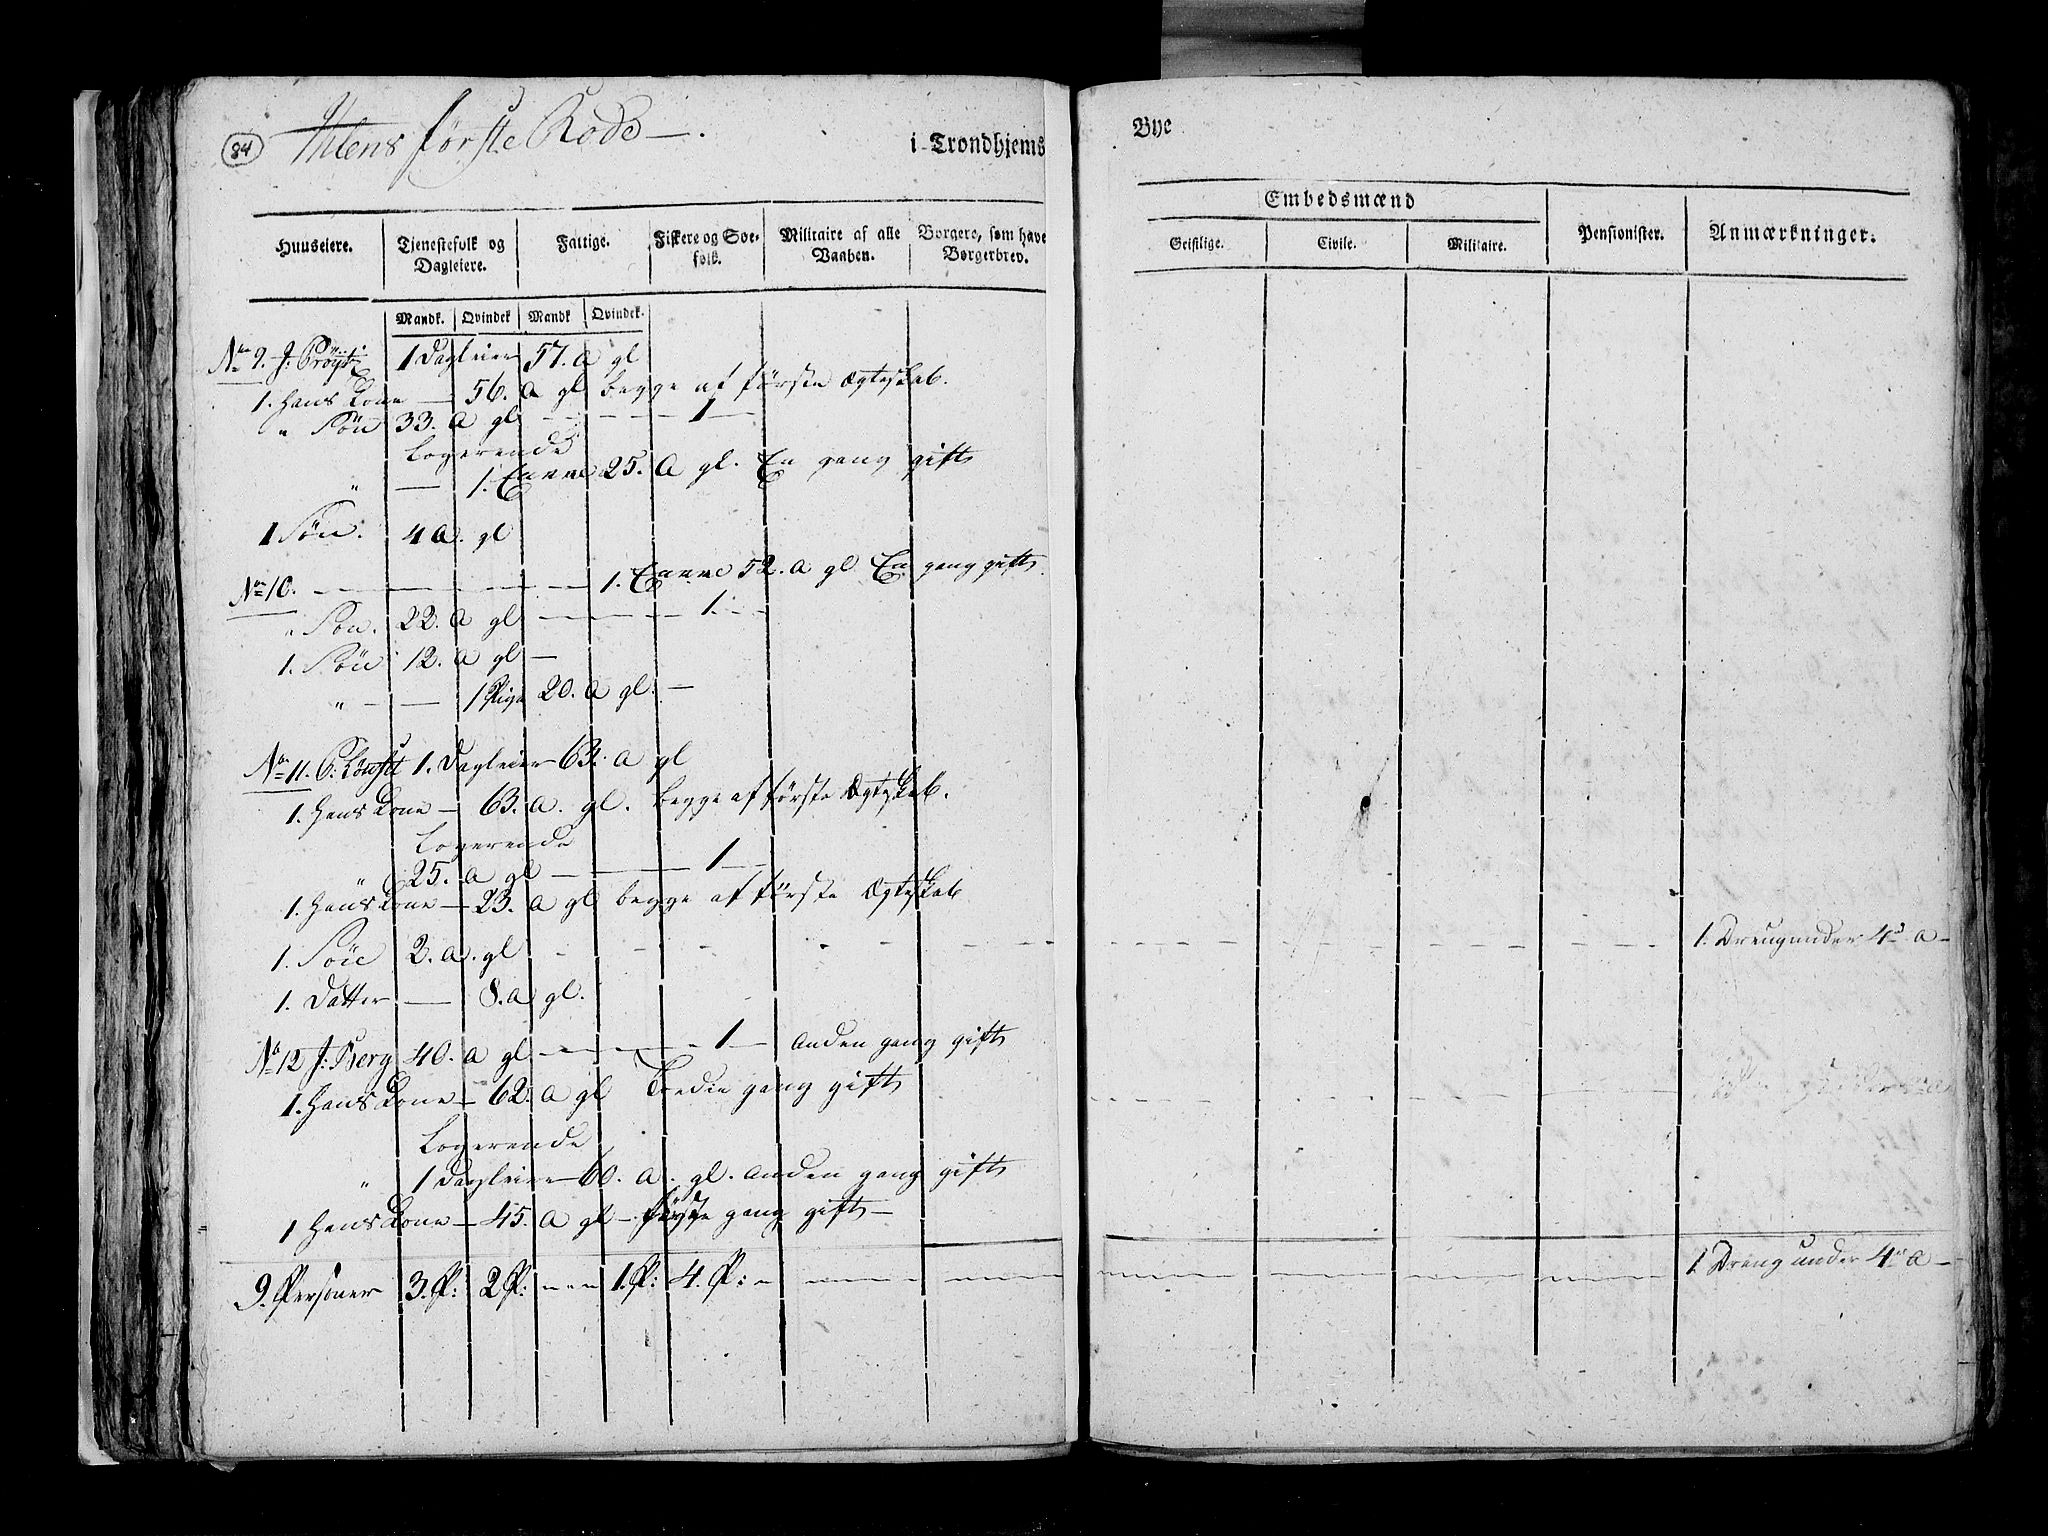 84
Ihlens første Rode —.
i Trondhjems
Huuseiere. Tjenestefolk og Dagleiere. Fattige. Fiskere og Søefolk. Militaire af alle Vaaben. Borgere, som have Borgerbrev.
Mandk. Qvindek Mandk Qvindek.
No 9. J: 1 Dagleier 57. a gl
1. Hans Kone — 56. a gl begge af første Ægteskab.
" Søn 33. a gl — — — — 1 —
Logerende
" — 1. Enke 25. a gl. En gang gift
1 Søn. 4 a. gl
No 10. — — — — — 1. Enke 52. a gl En gang gift
" Søn. 22. a gl — — — 1. — —
1. Søn 12. a gl —
" — — 1 Pige 20. a gl. —
No 11. 1. Dagleier 63. a gl
1. Hans Kone — 63. a. gl. begge af første Ægteskab.
Logerende
" 25. a gl — — — 1 — —
1. Hans Kone — 23. a gl begge af første Ægteskab
1. Søn 2. a. gl — — — — — —
1. Datter — 8. a gl.
No 12 J: Berg 40. a gl — — — 1 — anden gang gift
1. Hans Kone — 62. a gl Tredie gang gift
Logerende
" 1 Dagleier 60. a. gl. anden gang gift
1 Hans Kone — 45. a gl — første gang gift —
9. Personer 3. P: 2 P: — — 1. P: 4. P: — — — —
Bye
Embedsmænd
Geistlige. Civile. Militaire. Pensionister. Anmærkninger.
1. Dreng under 4 a —
1. Dreng under 4 a —